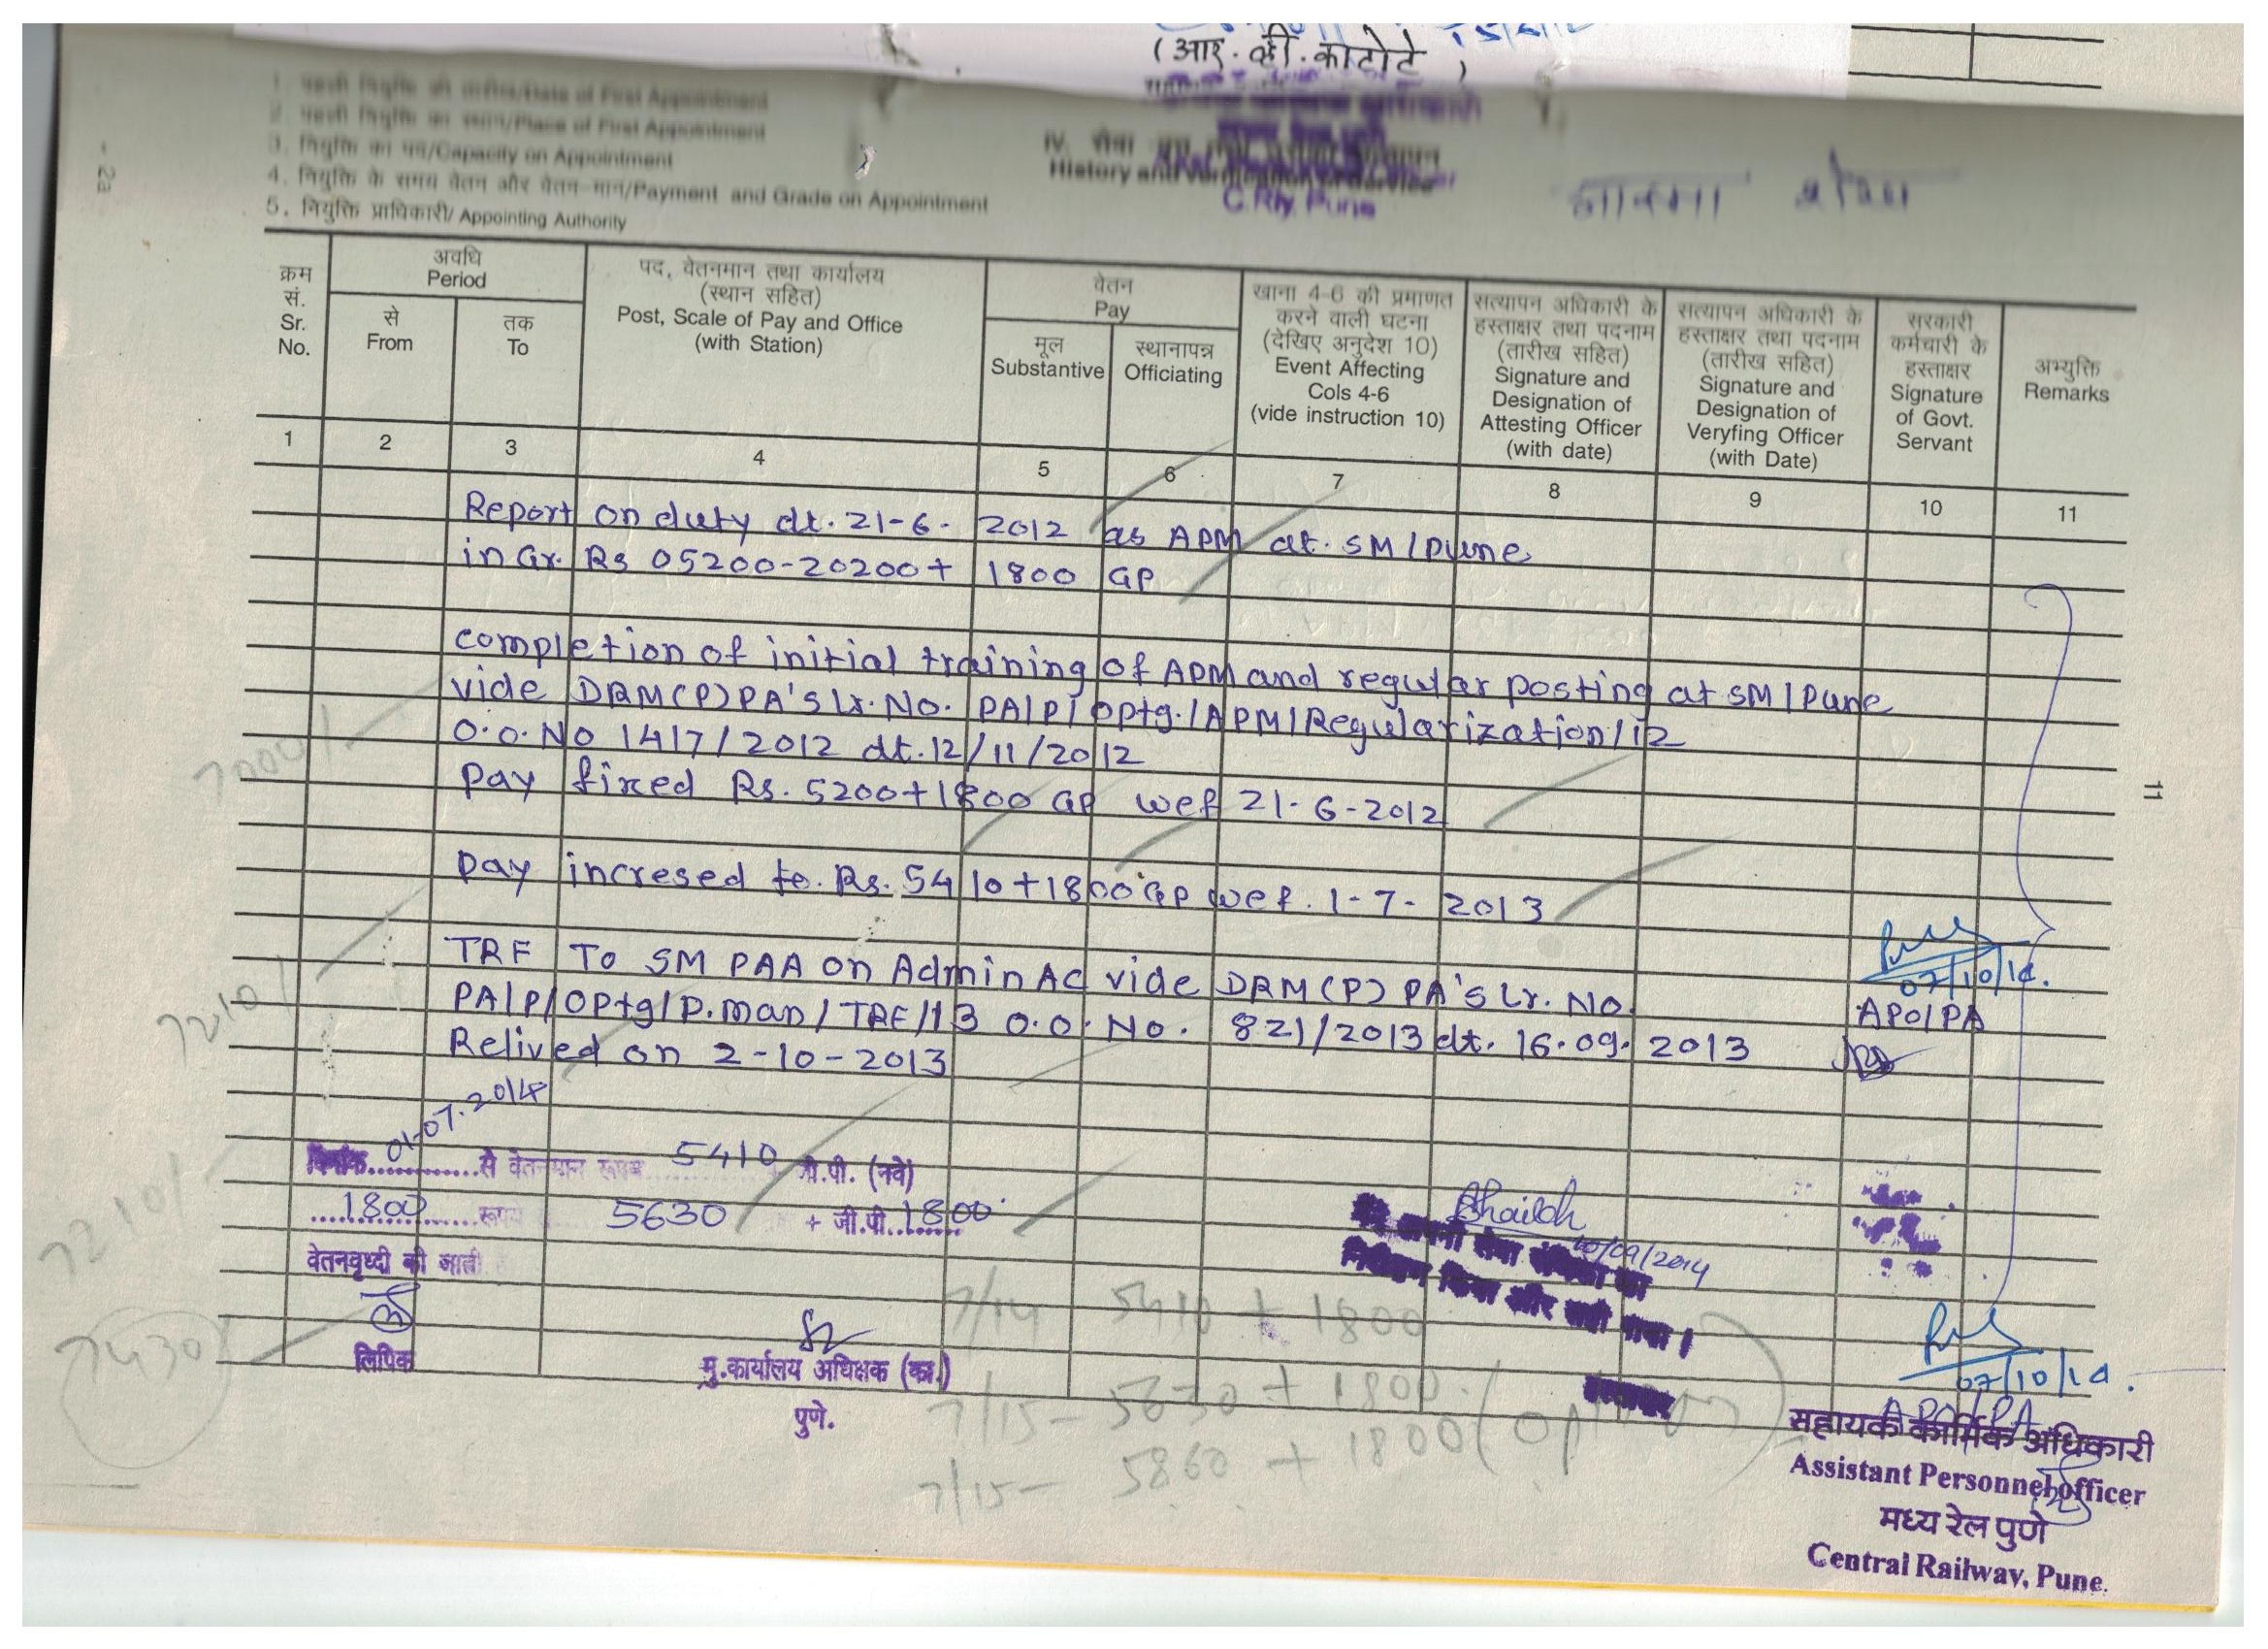 (आर. व्ही. काटोटे)
1. पहली नियुक्ति की तारीख/Date of First Appointment
2. पहली नियुक्ति का स्थान/Place of First Appointment
3. नियुक्ति का पद/Capacity on Appointment
4. नियुक्ति के समय वेतन और वेतन-मान/Payment and Grade on Appointment
5. नियुक्ति प्राधिकारी/ Appointing Authority
IV. सेवा
History and Verification of Service
C.Rly. Pune
2a
क्रम सं. Sr. No.
अवधि Period
से From
तक To
पद, वेतनमान तथा कार्यालय (स्थान सहित) Post, Scale of Pay and Office (with Station)
वेतन Pay
मूल Substantive
स्थानापन्न Officiating
खाना 4-6 की प्रमाणत करने वाली घटना (देखिए अनुदेश 10) Event Affecting Cols 4-6 (vide instruction 10)
सत्यापन अधिकारी के हस्ताक्षर तथा पदनाम (तारीख सहित) Signature and Designation of Attesting Officer (with date)
सत्यापन अधिकारी के हस्ताक्षर तथा पदनाम (तारीख सहित) Signature and Designation of Veryfing Officer (with Date)
सरकारी कर्मचारी के हस्ताक्षर Signature of Govt. Servant
अभ्युक्ति Remarks
1 2 3 4 5 6 7 8 9 10 11
Report on duty dt. 21-6-2012 as APM at. SM/Pune
in Gr. Rs 05200-20200+1800 GP
completion of initial training of APM and regular posting at SM/Pune
vide DRM(P)PA's Lr. No. PA/P/Optg./APM/Regularization/12
O.O. No 1417/2012 dt. 12/11/2012
7000/-
pay fixed Rs. 5200+1800 GP wef 21-6-2012
11
pay incresed to. Rs. 5410+1800 GP wef. 1-7-2013
TRF To SM PAA on Admin AC vide DRM(P) PA's Lr. No.
07/10/14.
7210/-
PA/P/Optg/P.man/TRF/13 O.O. No. 821/2013 dt. 16.09.2013
APO/PA
Relived on 2-10-2013
दिनांक 01-07-2014 से वेतनमान रूपये 5410 जी.पी. (नवे)
7210/-
1800 रूपये 5630 + जी.पी. 1800
वेतनवृध्दी की जाती
Shaikh
10/09/2014
अपनी सेवा पंजिका का
निरीक्षण किया और सही पाया।
हस्ताक्षर
7430/
लिपिक
मु.कार्यालय अधिक्षक (का.)
पुणे.
7/14 5410 + 1800
7/15 - 5630 + 1800.
7/15 - 5860 + 1800 (option)
07/10/14.
APO/PA
सहायक कार्मिक अधिकारी
Assistant Personnel officer
मध्य रेल पुणे
Central Railway, Pune.